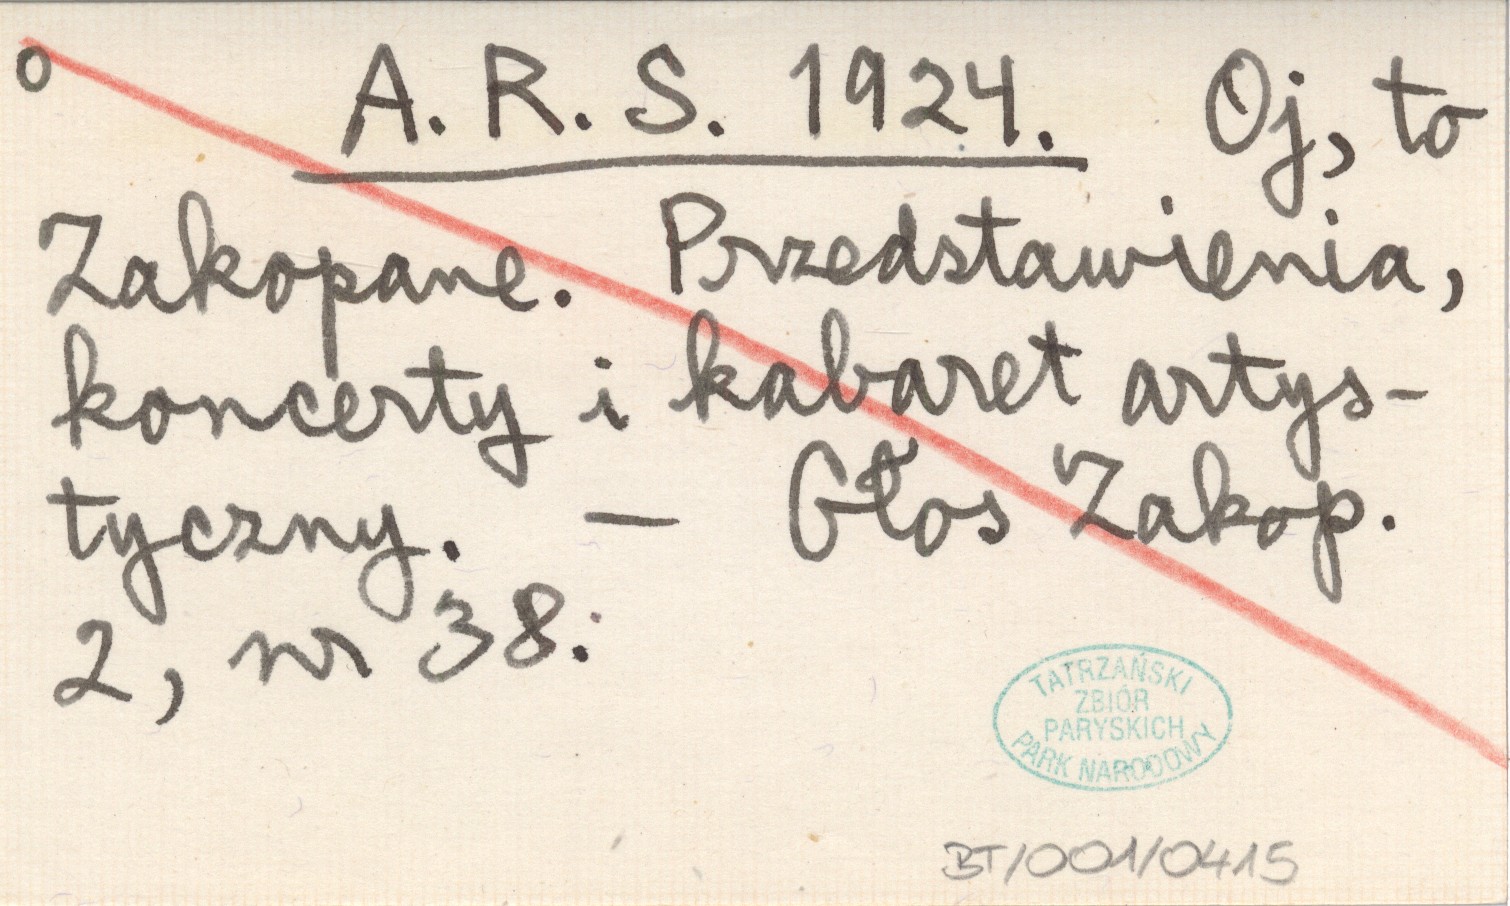 o A. R. S. 1924. Oj, to
Zakopane. Przedstawienia,
koncerty i kabaret artys-
tyczny. — Głos Zakop.
2, nr 38.
TATRZAŃSKI
ZBIÓR
PARYSKICH
PARK NARODOWY
BT/001/0415